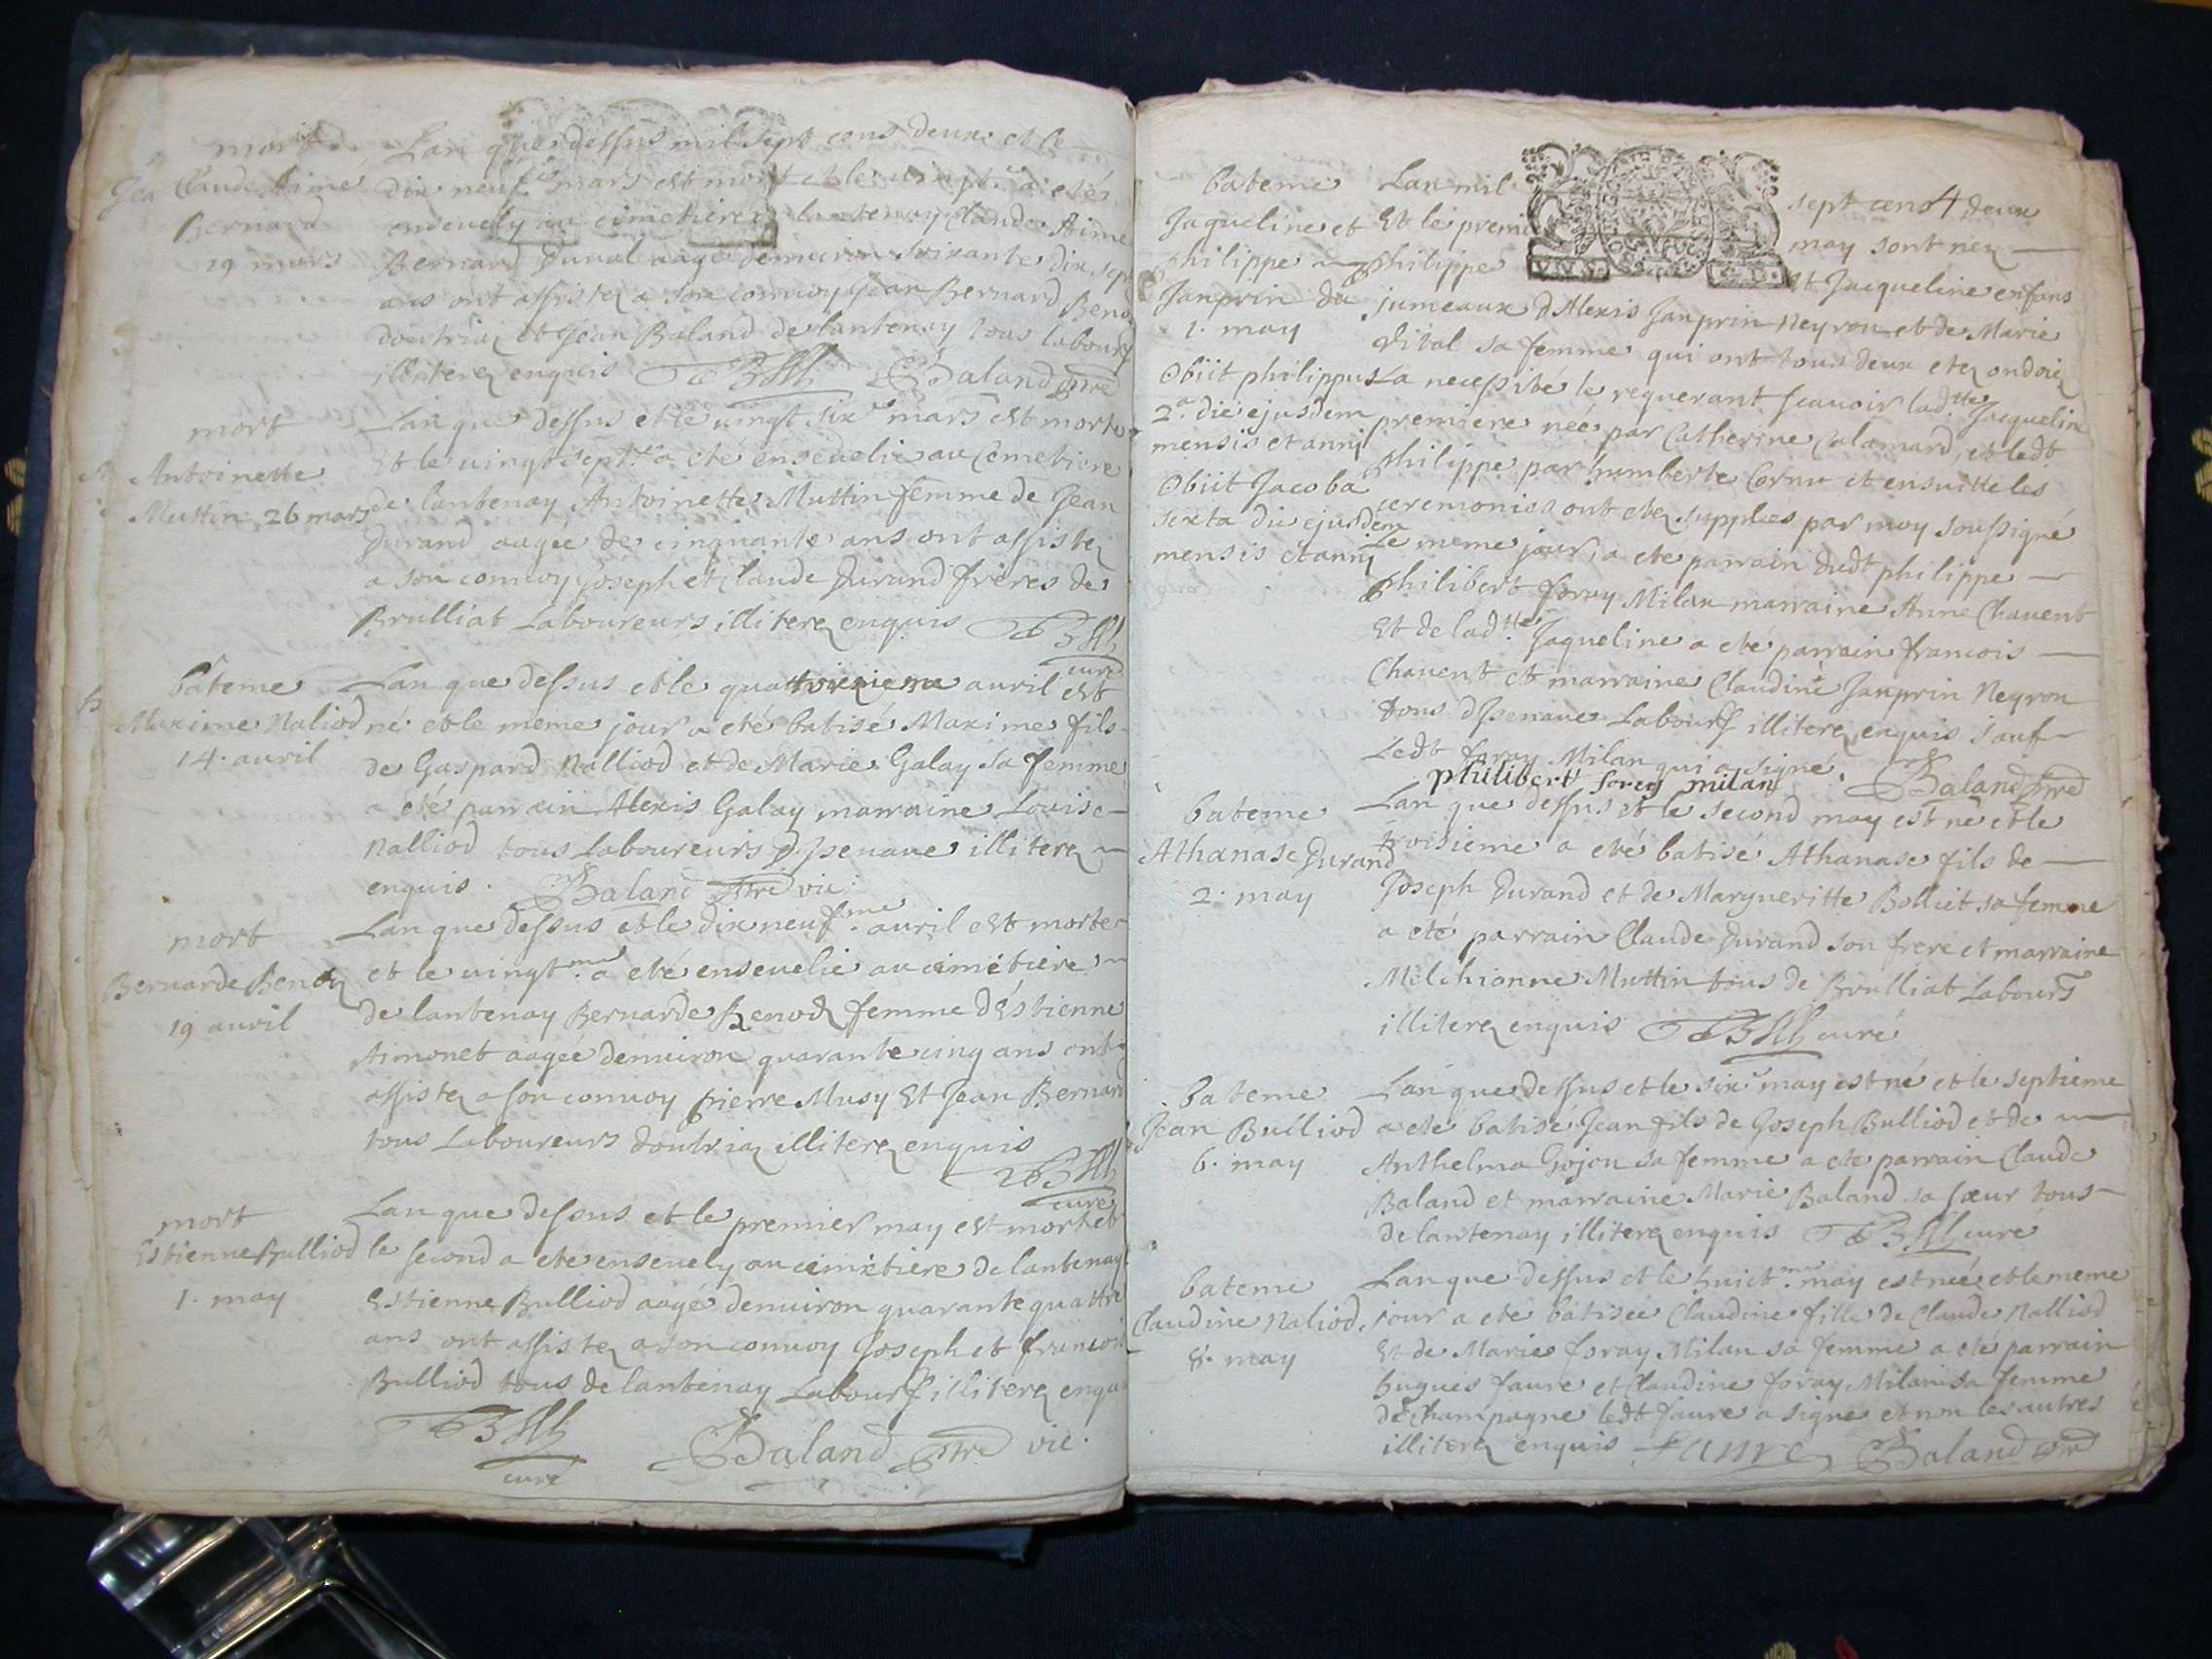 mort
Claude Aime
Bernard
19 mars
Lan que dessus mil sept cens deux et le
dix neuf mars est mort et le vingt a esté
ensevely au cimetiere lantenay Claude Aime
Bernard Duval aagé denviron soixante dix sept
ans ont assistez a son convoy Jean Bernard Beno
doutriaz et Jean Baland de lantenay tous labours
illiterez enquis Baland ptre
mort
Antoinette
Muttin 26 mars
Lan que dessus et le vingt six mars est morte
Et le vingt sept a eté ensevelie au Cemetiere
de lantenay Antoinette Muttin femme de Jean
Durand aagée de cinquante ans ont assistez
a son convoy Joseph et Claude Durand freres de
Brulliat Laboureurs illiterez enquis
curé
bâteme
Maxime Naliod
14. avril
Lan que dessus et le quattorzieme avril est
né et le meme jour a eté batisé Maxime fils
de Gaspard Nalliod et de Marie Galay sa femme
a eté parrain Alexis Galay marraine Louise
Nalliod tous Laboureurs dIsenave illiterez
enquis. Baland ptre vic.
mort
Bernarde Benoz
19 avril
Lan que dessus et le dix neufme avril est morte
et le vingtme a eté ensevelie au cimétiere
de lantenay Bernarde Benoz femme dEstienne
Aimonet aagée denviron quarante cinq ans ont
assistez a son convoy pierre Musy Et Jean Bernard
tous Laboureurs doutriaz illiterez enquis
curé
mort
Estienne Bulliod
1. may
Lan que dessus et le premier may est mort et
le second a ete ensevely au cimétiere de lantenay
Estienne Bulliod aagé denviron quarante quattre
ans ont assistez a son convoy Joseph et francois
Bulliod tous de lantenay Labours illiterez enqu
curé Baland ptre vic.
bateme
Jaqueline et
philippe
Janprin du
1. may
Obiit philippus
2a. die ejusdem
mensis et anni
Obiit Jacoba
sexta die ejusdem
mensis et anni
Lan mil sept cens deux
Et le premi may sont nez
philippe Et Jacqueline enfans
jumeaux dAlexis Janprin Neyron et de Marie
Vital sa femme qui ont tous deux etez ondoiez
La necessité le requerant scavoir ladtte Jacqueline
premiere née par Catherine Calamard, et ledt
philippe par humberte Cornu et ensuitte les
ceremonies ont etez supplées par moy soussigné
Le meme jour, a ete parrain dudt philippe
philibert foray Milan marraine Anne Chavent
Et de ladtte Jaqueline a eté parrain francois
Chavent et marraine Claudine Janprin Neyron
tous dIsenave Labours illiterez enquis sauf
Ledt foray Milan qui a signé.
philibert forey milan Baland ptre
bateme
Athanase Durand
2. may
Lan que dessus et le second may est né et le
troisieme a eté batisé Athanase fils de
Joseph Durand et de Margueritte Bolliet sa femme
a eté parrain Claude Durand son frere et marraine
Melchionne Muttin tous de Brulliat Labours
illiterez enquis curé
bateme
Jean Bulliod
6. may
Lan que dessus et le six may est né et le septieme
a ete batisé Jean fils de Joseph Bulliod et de
Anthelma Gojon sa femme a ete parrain Claude
Baland et marraine Marie Baland sa sœur tous
de lantenay illiterez enquis curé
bateme
Claudine Naliod
8. may
Lan que dessus et le huictme may est née et le meme
jour a ete batisée Claudine fille de Claude Nalliod
Et de Marie foray Milan sa femme a eté parrain
hugues faure et Claudine foray Milan sa femme
de Champagne ledt faure a signé et non les autres
illiterez enquis faure Baland ptre